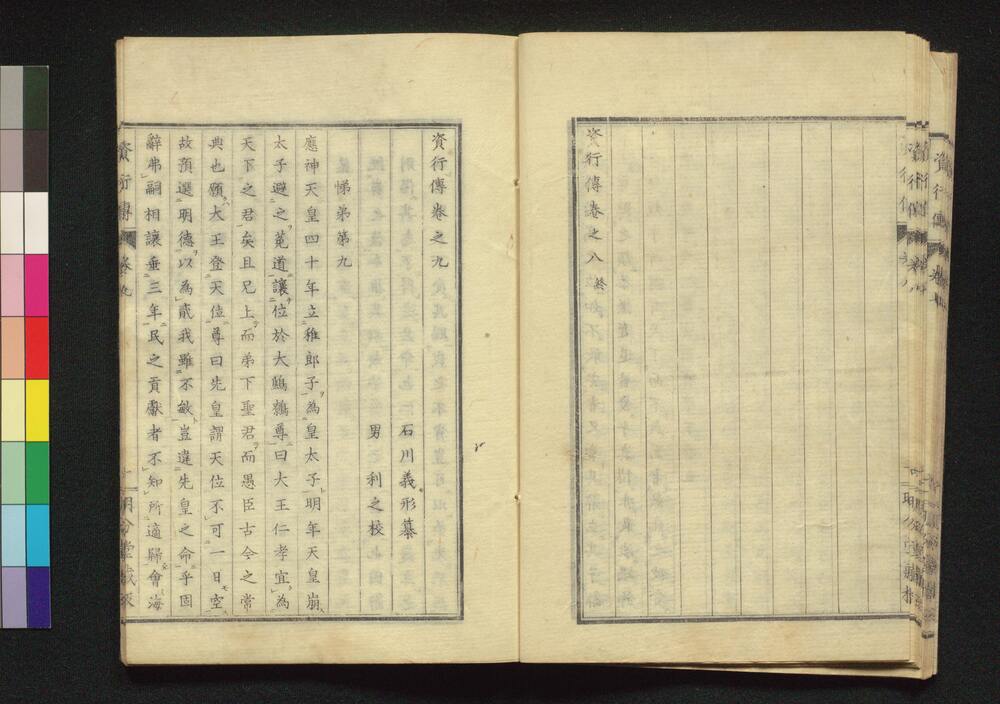 資行傳卷之八 終
資行傳卷之九
石川義形纂
男 利之校
悌弟第九
應神天皇四十年立稚郎子為皇太子明年天皇崩
太子避之菟道讓位於大鷦鷯尊曰大王仁孝宜為
天下之君矣且兄上而弟下聖君而愚臣古今之常
典也願大王登天位尊曰先皇謂天位不可一日空
故預選明德以為貳我雖不敏豈違先皇之命乎固
辭弗嗣相讓垂三年民之貢獻者不知所適歸會海
資行傳 卷九